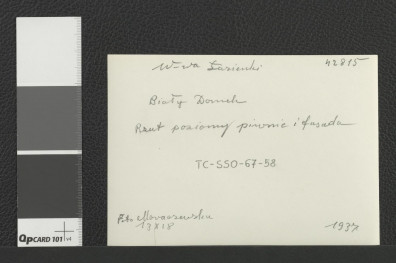 W-wa Łazienki 42815
Biały Domek
Rzut poziomy piwnic i fasada
TC-SSO-67-58
13x18 1937
QPCARD 101